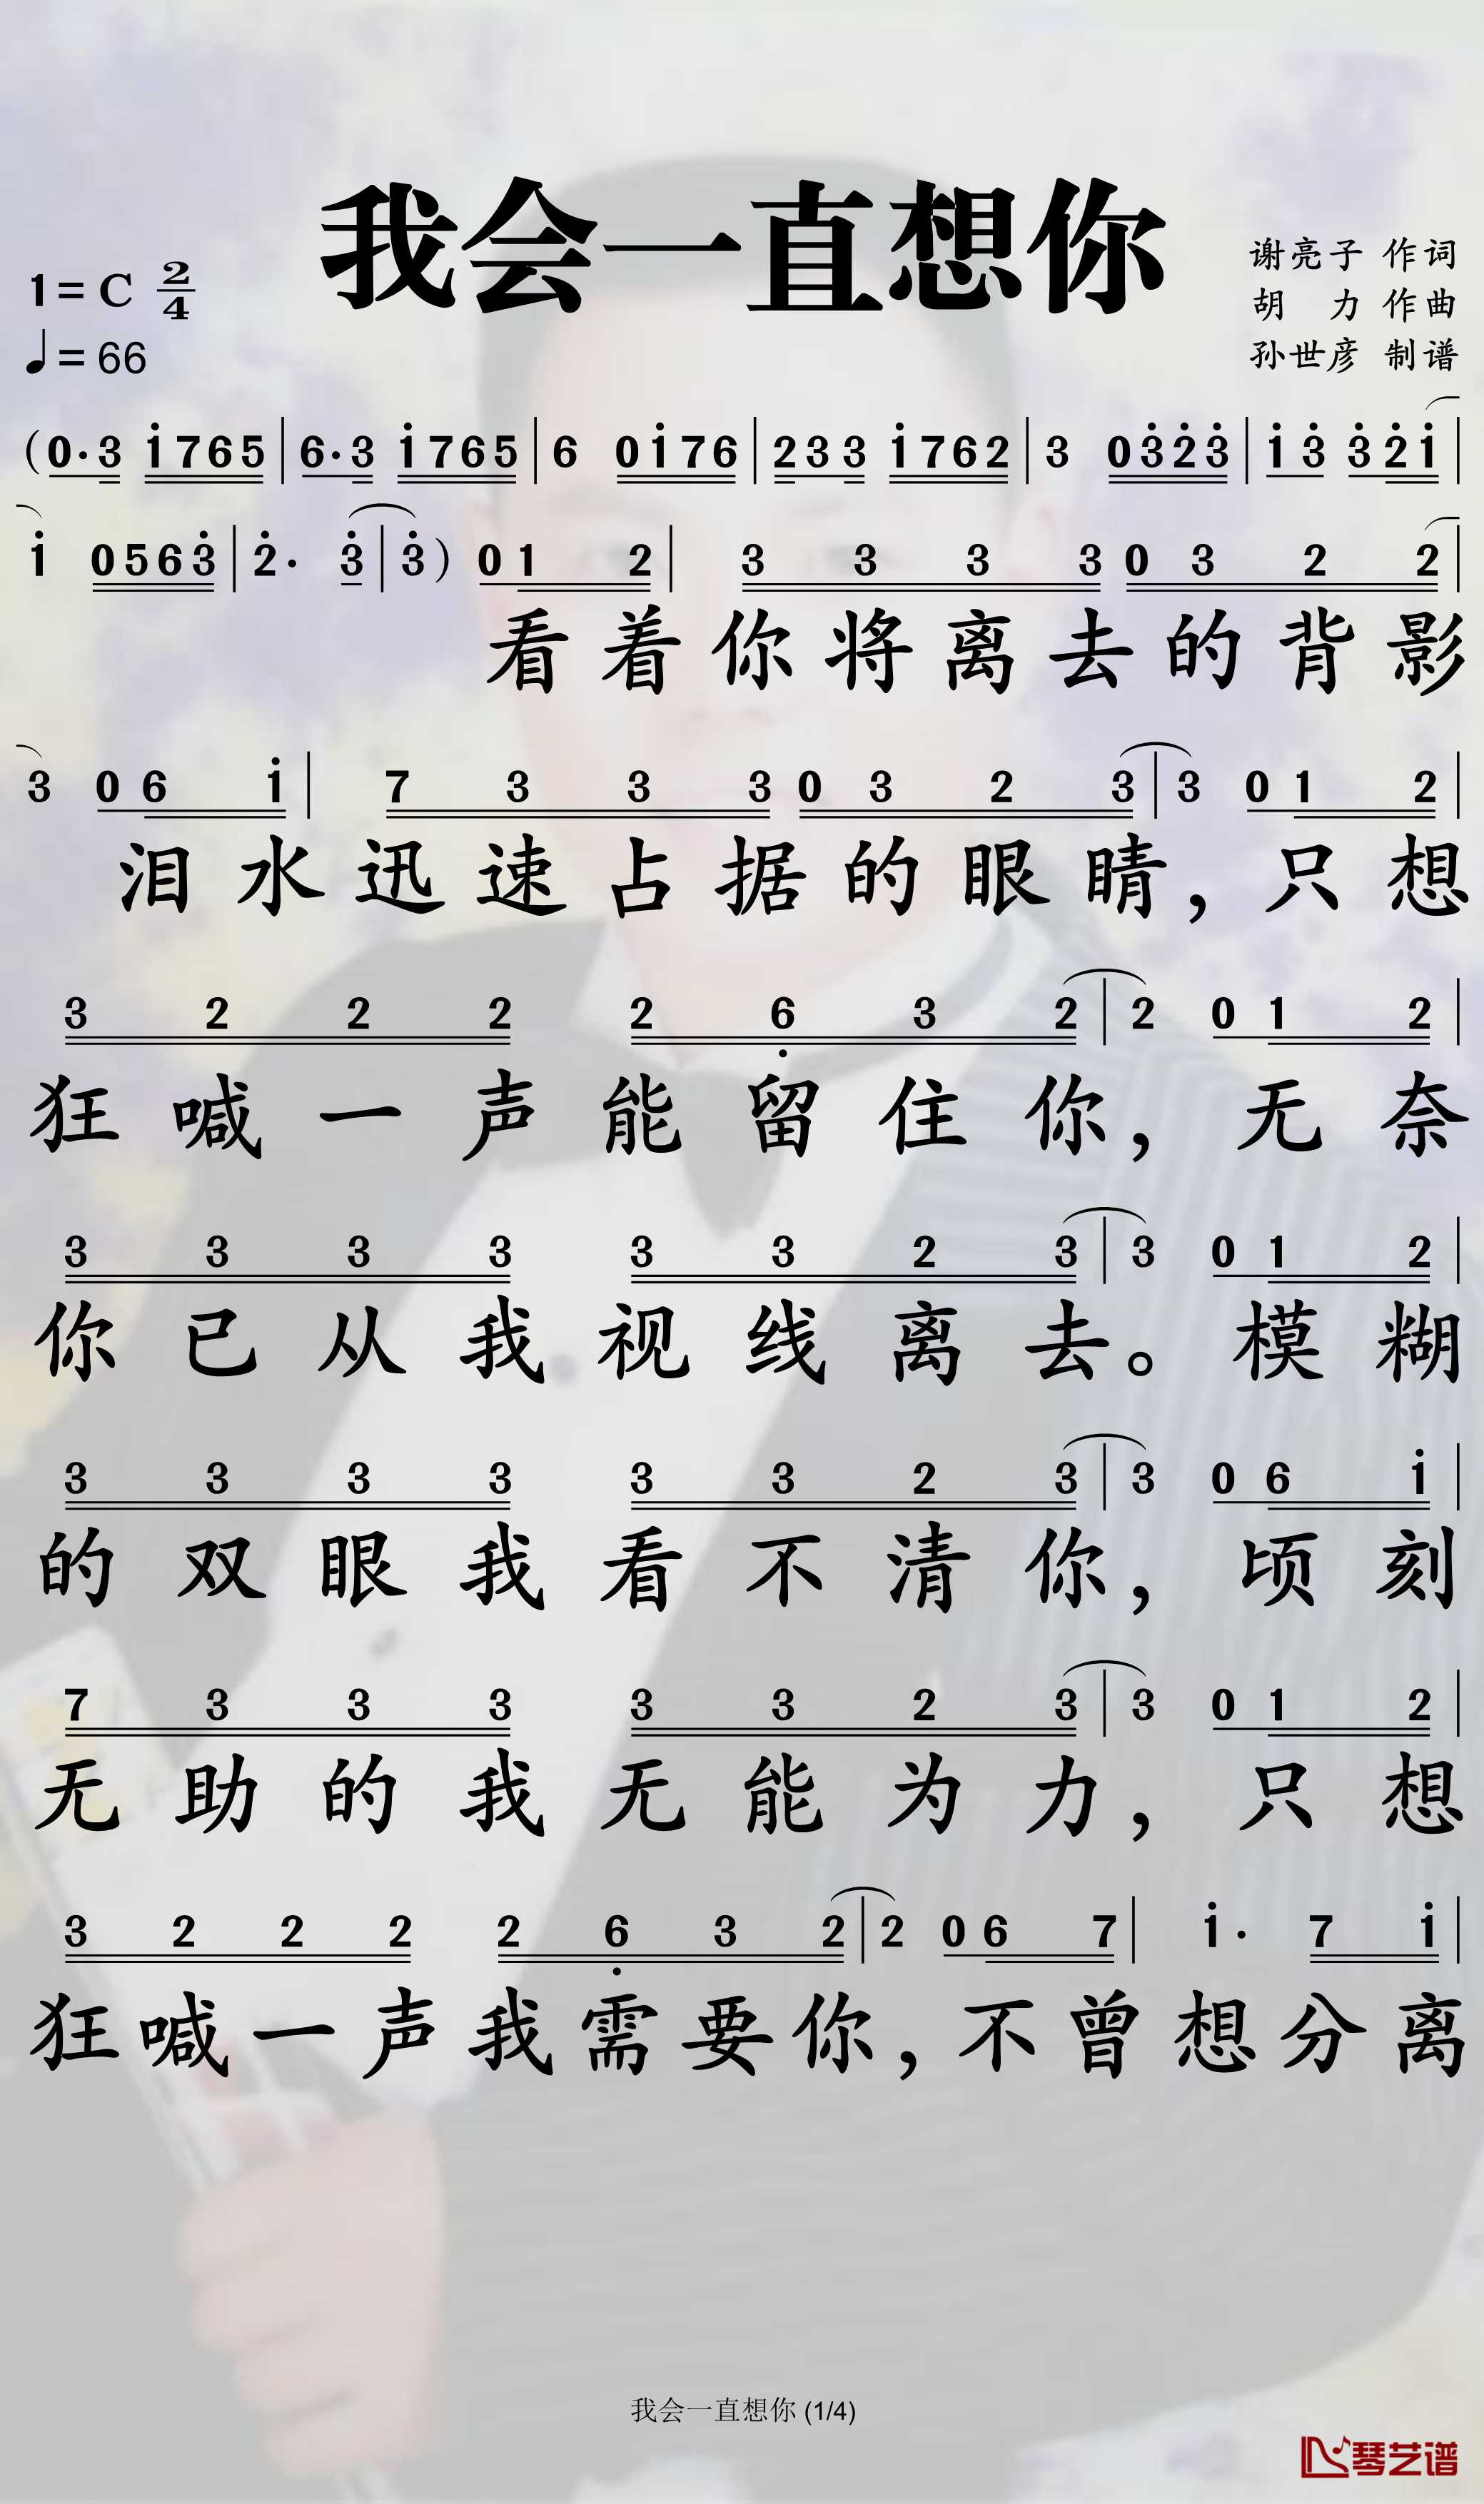 我会一直想你
1=C 2/4
谢亮子 作词
胡 力 作曲
♩=66
孙世彦 制谱
(0·3 i765|6·3 i765|6 0i76|233 i762|3 03̇2̇3̇|i3̇ 3̇2̇i|
i 0563̇|2̇· 3̇|3̇) 01 2| 3 3 3 3 0 3 2 2|
看着你将离去的背影
3 06 i| 7 3 3 3 0 3 2 3|3 01 2|
泪水迅速占据的眼睛，只想
3 2 2 2 2 6̣ 3 2|2 01 2|
狂喊一声能留住你，无奈
3 3 3 3 3 3 2 3|3 01 2|
你已从我视线离去。模糊
3 3 3 3 3 3 2 3|3 06 i|
的双眼我看不清你，顷刻
7 3 3 3 3 3 2 3|3 01 2|
无助的我无能为力，只想
3 2 2 2 2 6̣ 3 2|2 06 7| i· 7 i|
狂喊一声我需要你，不曾想分离
我会一直想你 (1/4)
琴艺谱